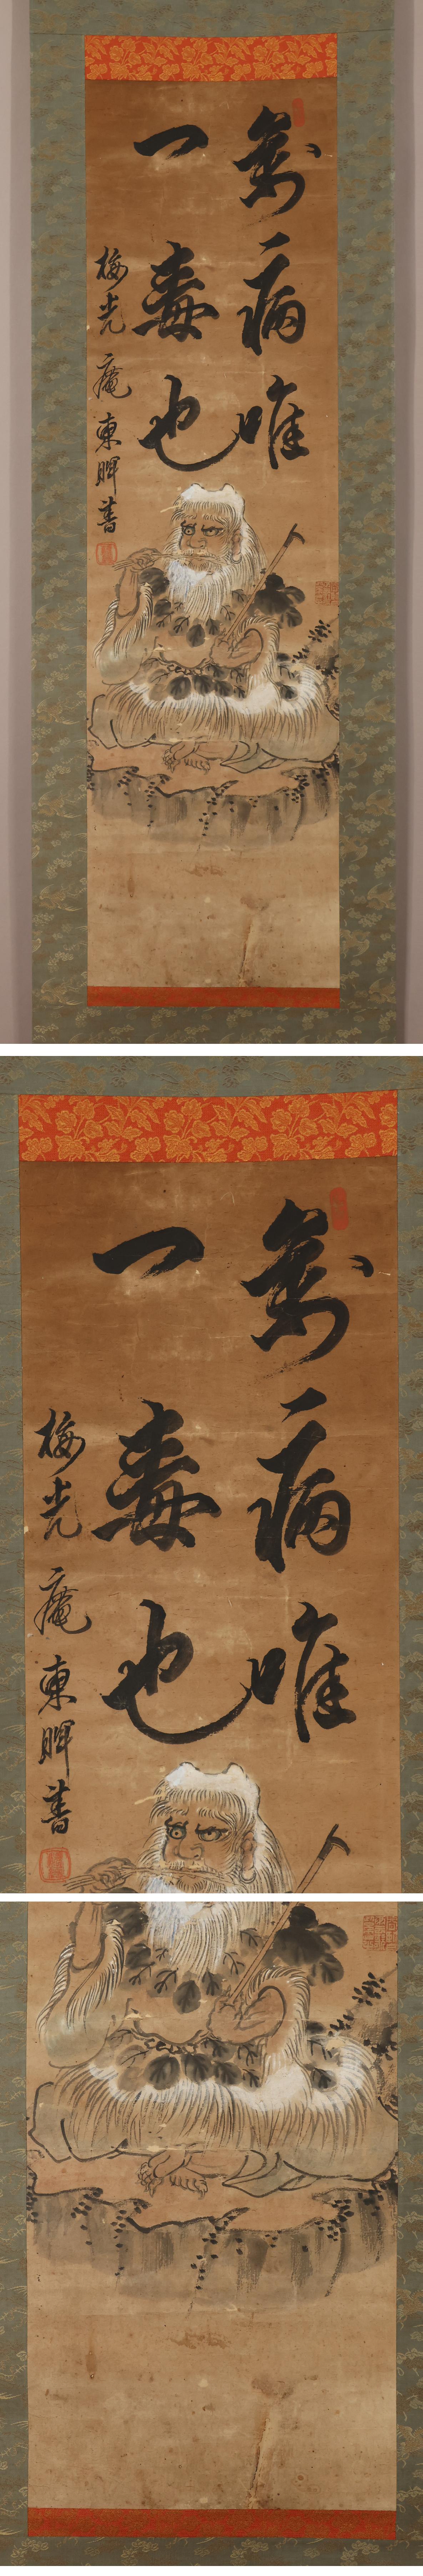 萬病唯
一毒也
梅光庵東暉書
萬病唯
一毒也
梅光庵東暉書